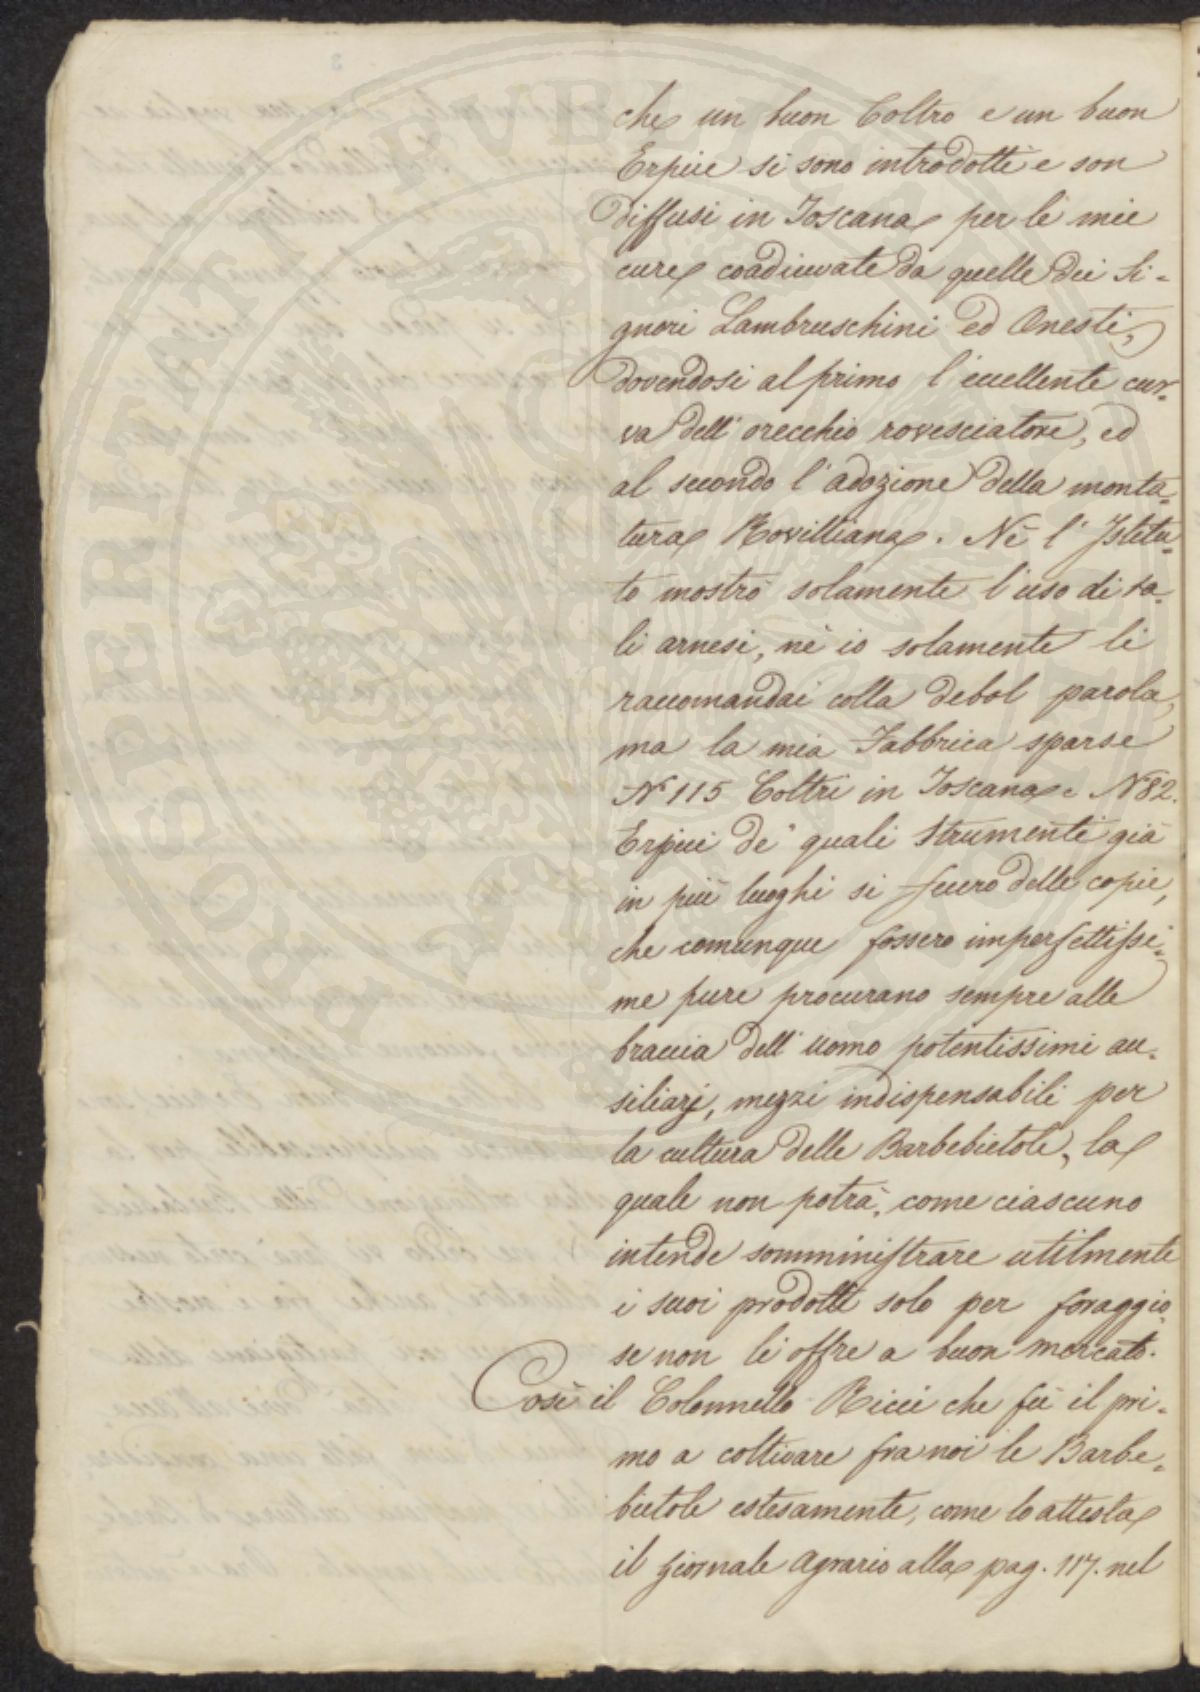 che un buon Coltro e un buon
Erpice si sono introdotti e son
diffusi in Toscana per le mie
cure coadiuvate da quelle dei Si=
gnori Lambruschini ed Onesti,
dovendosi al primo l'eccellente cur=
va dell'orecchio rovesciatore, ed
al secondo l'adozione della monta=
tura Rovilliana. Nè l'Istitu=
to mostrò solamente l'uso di ta=
li arnesi, nè io solamente li
raccomandai colla debol parola,
ma la mia Fabbrica sparse
N° 115 Coltri in Toscana e N° 82.
Erpici de' quali Strumenti già
in più luoghi si fecero delle copie,
che comunque fossero imperfettissi=
me pure procurano sempre alle
braccia dell'uomo potentissimi au=
siliarj, mezzi indispensabili per
la cultura delle Barbebietole, la
quale non potrà, come ciascuno
intende somministrare utilmente
i suoi prodotti solo per foraggio,
se non li offre a buon mercato.
Così il Colonnello Ricci che fù il pri=
mo a coltivare fra noi le Barbe=
bietole estesamente, come lo attesta
il Giornale Agrario alla pag. 117. nel
PROSPERITATI PVBLICAE